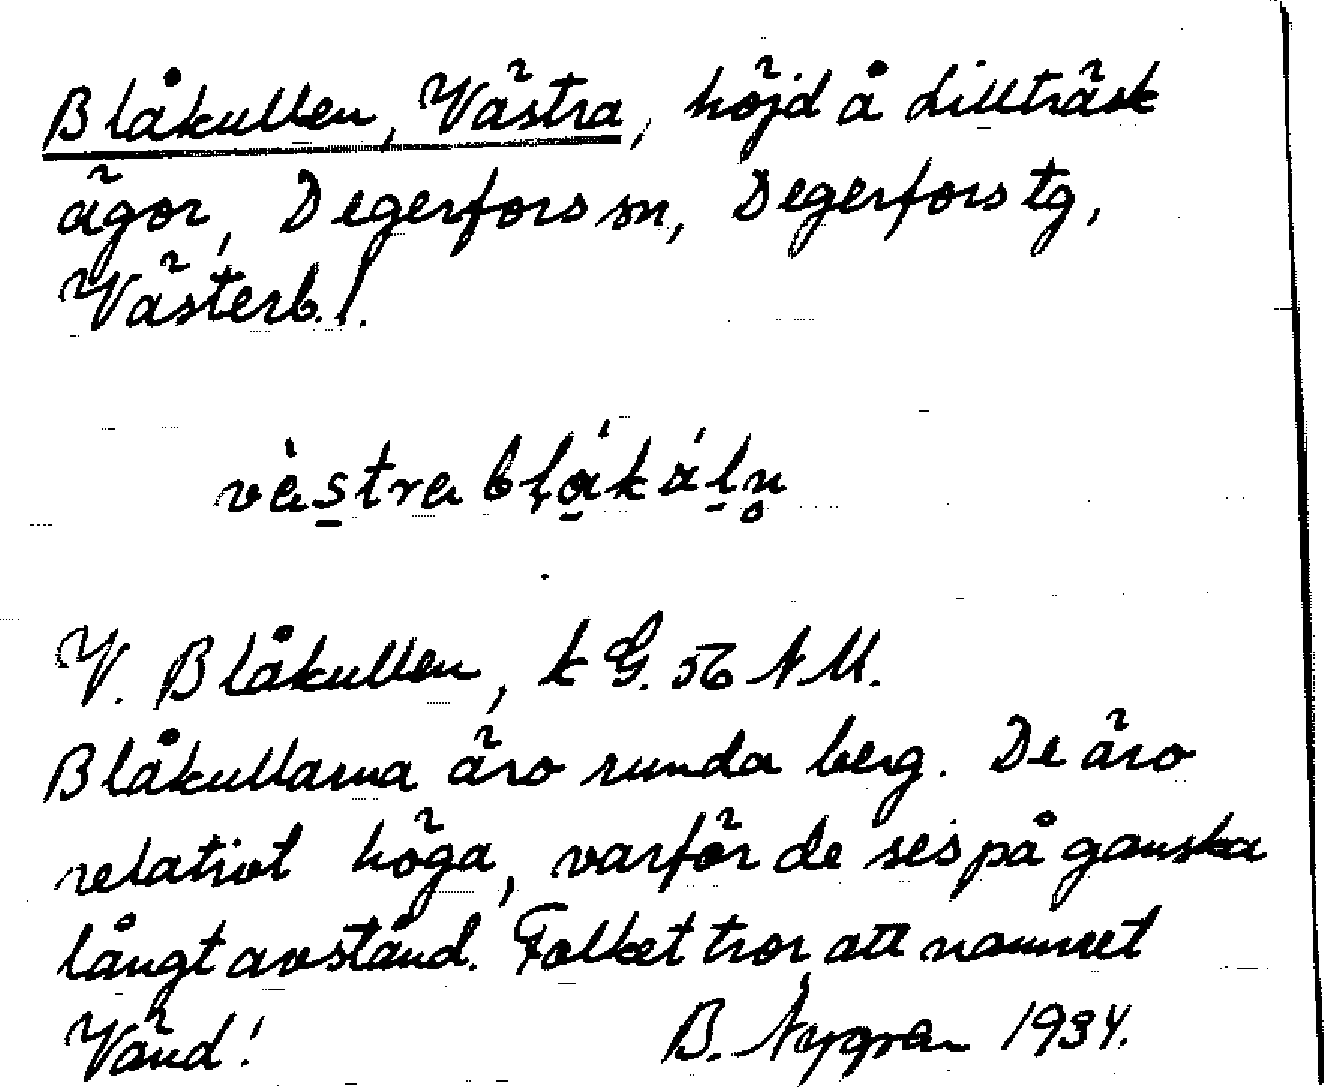 Blåkullen, Västra, höjd å Lillträsk
ägor, Degerfors sn, Degerfors tg,
Västerb. l.
västra blåkäln
V. Blåkullen, k G. 56 NM.
Blåkullarna äro runda berg. De äro
relativt höga, varför de ses på ganska
långt avstånd. Folket tror att namnet
Vänd! B. Nygren 1934.